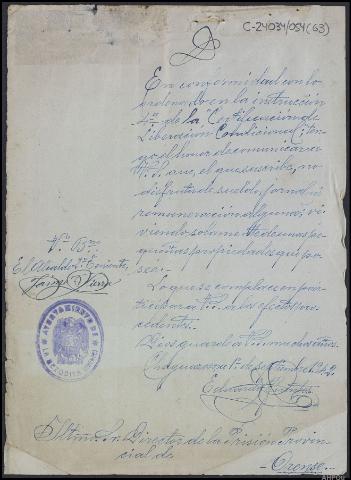 C-24034/054(63)
En conformidad con lo
ordenado en la instrucción
4ª de la Certificación de
Liberación Condicional; ten-
go el honor de comunicar a
V.S. que, el que suscribe, no
disfruta de sueldo, jornal ni
remuneración alguna; vi-
viendo solamente de unas pe-
queñas propiedades que po-
see.-
Lo que se complace en par-
ticipar a V.S. a los efectos pro-
cedentes.-
Dios guarde a V.S. muchos años.
septiembre 1942.
Vº Bº
El Alcalde
AYUNTAMIENTO DE
Iltmo. Sr. Director de la Prisión Provin-
cial de
-Orense-
AHPOU